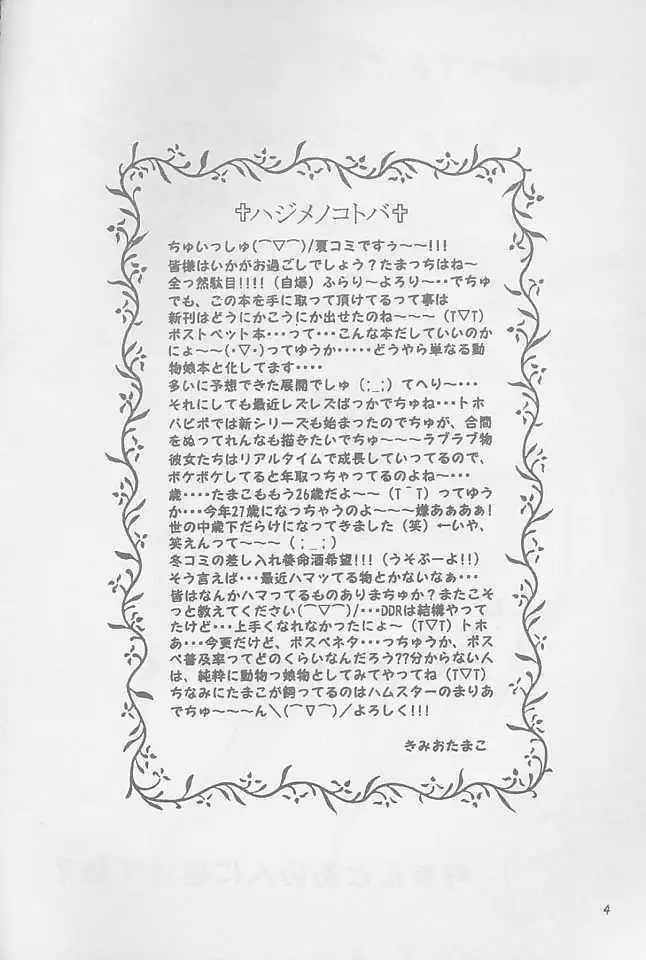 ✝ハジメノコトバ✝
ちゅいっしゅ(⌒▽⌒)/夏コミですぅ～～!!!
皆様はいかがお過ごしでしょう？たまっちはね～
全っ然駄目!!!!（自爆）ふらり～よろり～･･でちゅ
でも、この本を手に取って頂けてるって事は
新刊はどうにかこうにか出せたのね～～（T▽T）
ポストペット本･･･って･･･こんな本だしていいのか
にょ～～(･▽･)ってゆうか･････どうやら単なる動
物娘本と化してます････
多いに予想できた展開でしゅ（;_;）てへり～･･･
それにしても最近レズレズばっかでちゅね･･･トホ
パピポでは新シリーズも始まったのでちゅが、合間
をぬってれんなも描きたいでちゅ～～～ラブラブ物
彼女たちはリアルタイムで成長していってるので、
ボケボケしてると年取っちゃってるのよね～･･･
歳････たまこももう26歳だよ～～（T＾T）ってゆう
か･･･今年27歳になっちゃうのよ～～～嫌あぁあぁ!
世の中歳下だらけになってきました（笑）←いや、
笑えんって～～～（;_;）
冬コミの差し入れ養命酒希望!!!（うそぷーよ!!）
そう言えば･･･最近ハマッてる物とかないなぁ･･･
皆はなんかハマってるものありまちゅか？またこそ
っと教えてください(⌒▽⌒)/･･･DDRは結構やって
たけど･･･上手くなれなかったにょ～（T▽T）トホ
あ･･･今更だけど、ポスペネタ･･･っちゅうか、ポス
ペ普及率ってどのくらいなんだろう??分からない人
は、純粋に動物っ娘物としてみてやってね（T▽T）
ちなみにたまこが飼ってるのはハムスターのまりあ
でちゅ～～～ん＼(⌒▽⌒)／よろしく!!!
きみおたまこ
4